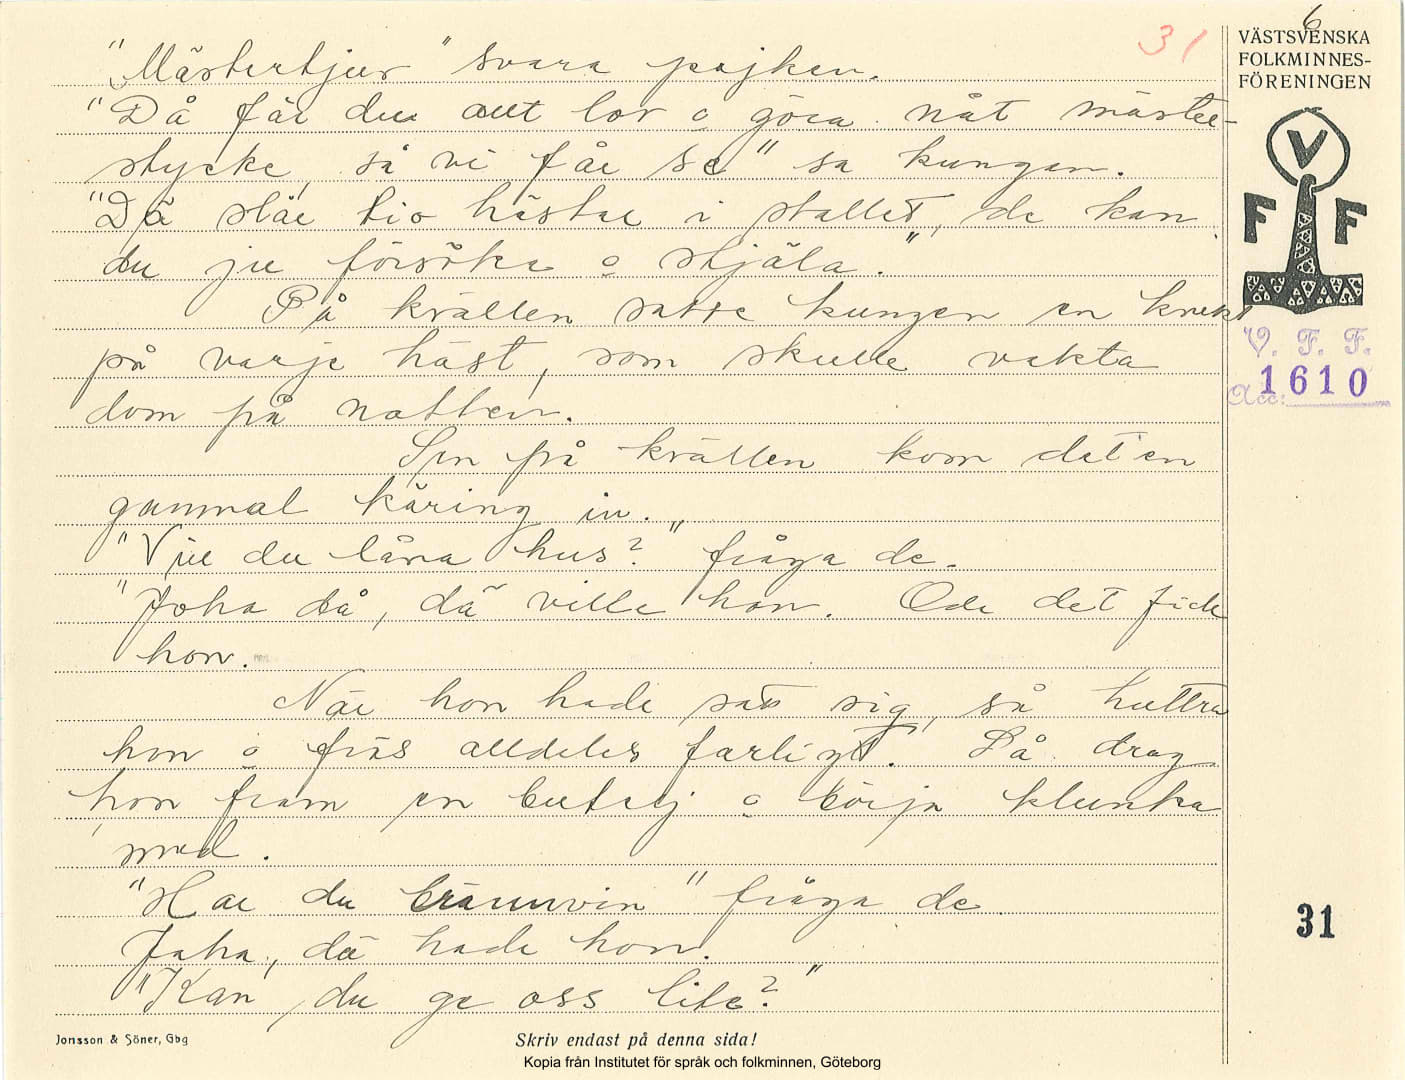 31
6
VÄSTSVENSKA
FOLKMINNES-
FÖRENINGEN
V
F F
V. F. F.
Acc: 1610
"Mästertjuv" svara pojken.
"Då får du allt lov o göra nåt mäster-
stycke, så vi får se" sa kungen.
"Dä står tio hästar i stallet, de kan
du ju försöka o stjäla."
På kvällen satte kungen en knekt
på varje häst, som skulle vakta
dom på natten.
Sen på kvällen kom det en
gammal käring in.
"Vill du låna hus?" fråga de.
"Joha då, dä ville hon. Ock det fick
hon.
När hon hade satt sig, så huttra
hon o frös alldeles farligt. Då drog
hon fram en butelj o börja klunka
med.
"Har du brännvin" fråga de.
Jaha, dä hade hon.
"Kan du ge oss lite?"
31
Jonsson & Söner, Gbg
Skriv endast på denna sida!
Kopia från Institutet för språk och folkminnen, Göteborg